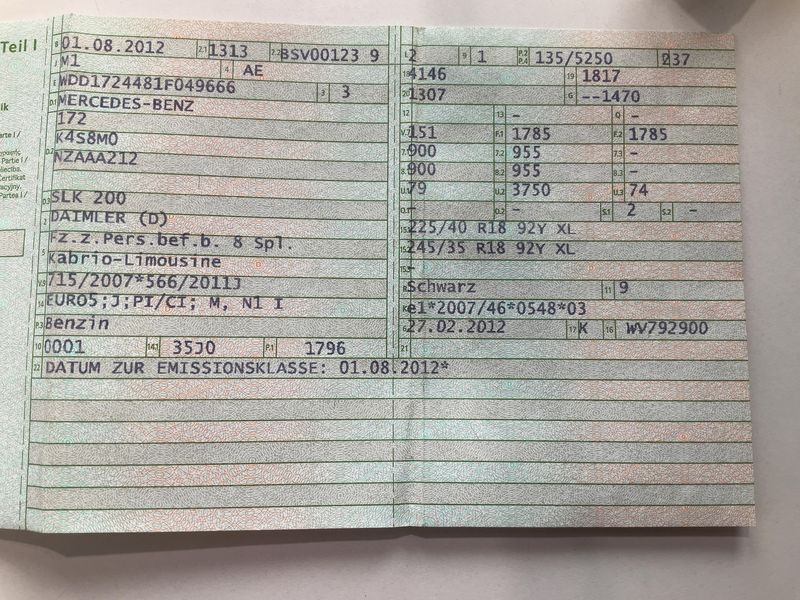 Teil I
B 01.08.2012 2.1 1313 2.2 BSV00123 9
J M1 4 AE
E WDD1724481F049666 3 3
D.1 MERCEDES-BENZ
172
D.2 K4S8M0
NZAAA212
D.3 SLK 200
2 DAIMLER (D)
5 Fz.z.Pers.bef.b. 8 Spl.
Kabrio-Limousine
V.9 715/2007*566/2011J
14 EURO5;J;PI/CI; M, N1 I
P.3 Benzin
10 0001 14.1 35J0 P.1 1796
22 DATUM ZUR EMISSIONSKLASSE: 01.08.2012*
L 2 9 1 P.2 P.4 135/5250 T 237
18 4146 19 1817
20 1307 G --1470
12 13 - Q -
V.7 151 F.1 1785 F.2 1785
7.1 900 7.2 955 7.3 -
8.1 900 8.2 955 8.3 -
U.1 79 U.2 3750 U.3 74
O.1 - O.2 - S.1 2 S.2 -
15.1 225/40 R18 92Y XL
15.2 245/35 R18 92Y XL
15.3 -
R Schwarz 11 9
K e1*2007/46*0548*03
6 27.02.2012 17 K 16 WV792900
21